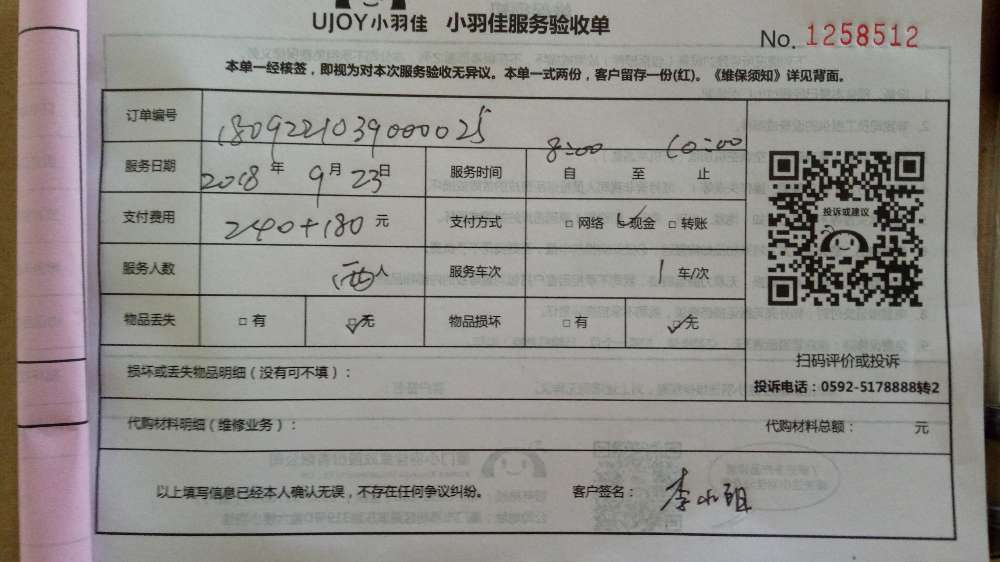 UJOY小羽佳 小羽佳服务验收单
No. 1258512
本单一经核签，即视为对本次服务验收无异议。本单一式两份，客户留存一份(红)。《维保须知》详见背面。
订单编号 1809221039000025
服务日期 2018年9月23日 服务时间 8:00 自 至 10:00 止
支付费用 240+180元 支付方式 □网络 ☑现金 □转账
服务人数 两人 服务车次 1车/次
物品丢失 □有 ☑无 物品损坏 □有 ☑无
投诉或建议
扫码评价或投诉
投诉电话：0592-5178888转2
损坏或丢失物品明细（没有可不填）：
代购材料明细（维修业务）： 代购材料总额： 元
以上填写信息已经本人确认无误，不存在任何争议纠纷。 客户签名： 李小姐